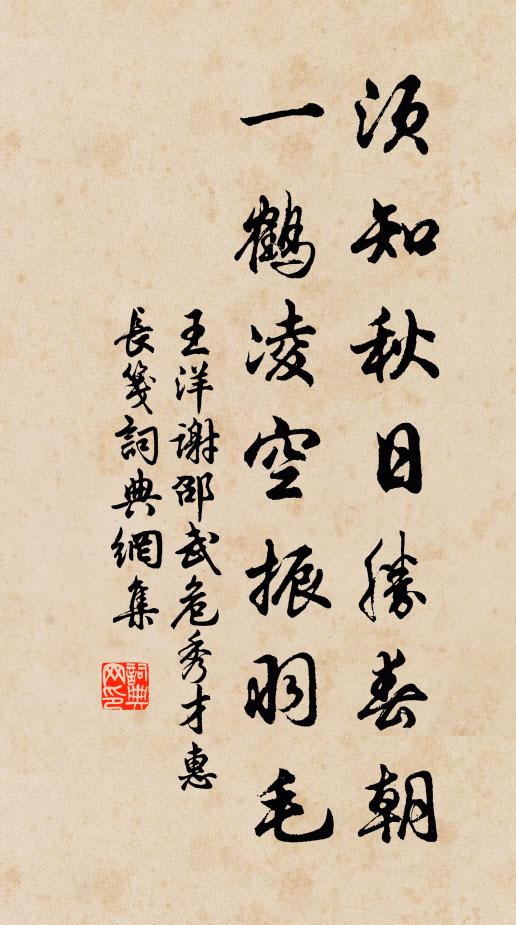 須知秋日勝春朝
一鶴凌空振羽毛
王洋謝邵武危秀才惠
長箋詞典網集
詞典網印